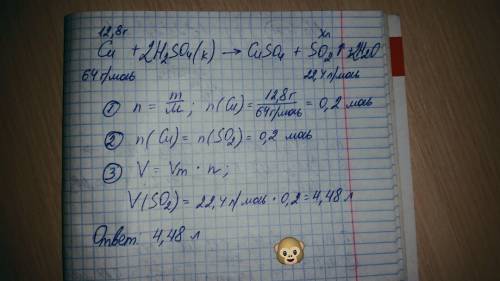 12,8г хл
Cu + 2H₂SO₄(к) → CuSO₄ + SO₂↑ + 2H₂O
64 г/моль 22,4 л/моль
① n = m/M; n(Cu) = 12,8г/64г/моль = 0,2 моль
② n(Cu) = n(SO₂) = 0,2 моль
③ V = Vm · n;
V(SO₂) = 22,4 л/моль · 0,2 = 4,48 л
Ответ: 4,48 л